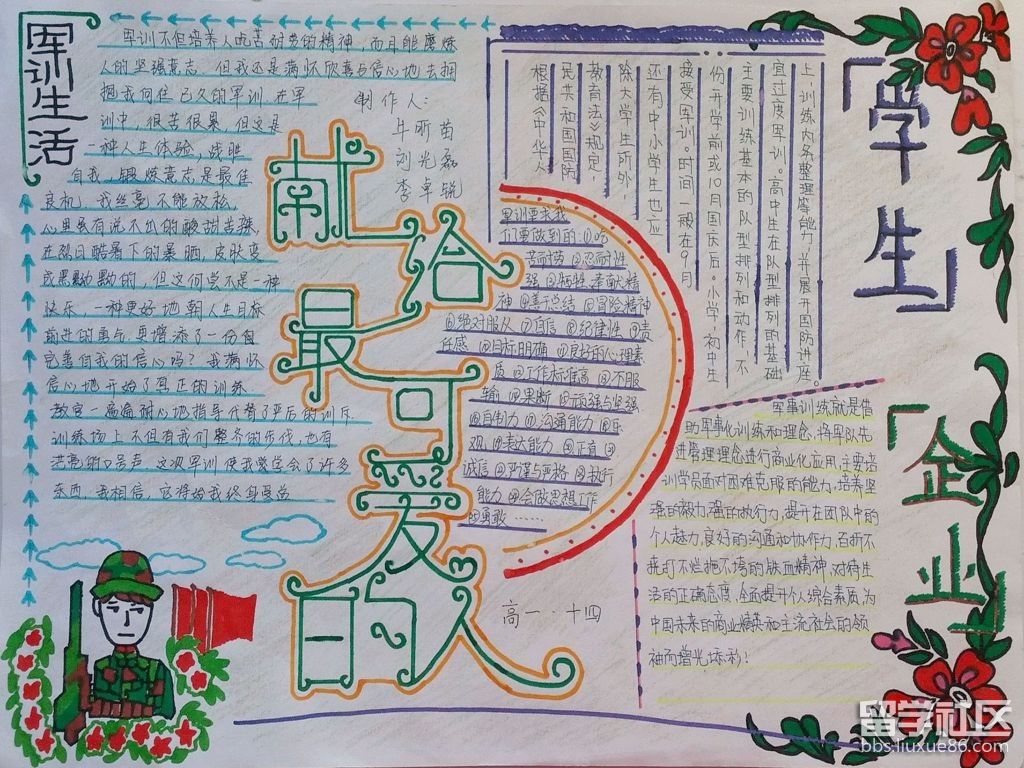 军训生活
军训不但培养人吃苦耐劳的精神，而且能磨炼
人的坚强意志，但我还是满怀欣喜与信心地去拥
抱我向往已久的军训，在军
训中，很苦很累，但这是
一种人生体验，战胜
自我，锻炼意志是最佳
良机，我丝毫不能放松，
心里虽有说不出的酸甜苦辣，
在烈日酷暑下的暴晒，皮肤变
成黑黝黝的，但这何尝不是一种
快乐，一种更好地朝人生目标
前进的勇气，更增添了一份自
完善自我的信心吗？我满怀
信心地开始了真正的训练
教官一遍遍耐心地指导代替了严厉的训斥
训练场上不但有我们整齐的步伐，也有
洪亮的口号声，这次军训使我学会了许多
东西，我相信，它将给我终身受益
制作人：
牛昕苗
刘光磊
李卓锐
献给最可爱的人
根据《中华人
民共和国国防
教育法》规定，
除大学生所外，
还有中小学生也应
接受军训。时间一般在9月
份开学前或10月国庆后。小学、初中生
主要训练基本的队型排列和动作，不
宜过度军训。高中生在队型排列的基础
上训练内务整理等能力，并展开国防讲座。
军训要求我
们要做到的：①吃
苦耐劳 ②忍耐性
强 ③牺牲奉献精
神 ④善于总结 ⑤冒险精神
⑥绝对服从 ⑦自信 ⑧纪律性 ⑨责
任感 ⑩目标明确 ⑪良好的心理素
质 ⑫工作标准高 ⑬不服
输 ⑭果断 ⑮顽强与坚强
⑯自制力 ⑰沟通能力 ⑱乐
观 ⑲表达能力 ⑳正直
诚信 严谨与严格 执行
能力 会做思想工作
勇敢……
高一·十四
「学生」
「企业」
军事训练就是借
助军事化训练和理念，将军队先
进管理理念进行商业化应用，主要培
训学员面对困难克服的能力，培养坚
强的毅力，强的执行力，提升在团队中的
个人魅力，良好的沟通和协作力，百折不
挠打不烂拖不垮的铁血精神，对待生
活的正确态度，全面提升个人综合素质，为
中国未来的商业精英和主流社会的领
袖而增光添彩！
留学社区
bbs.liuxue86.com